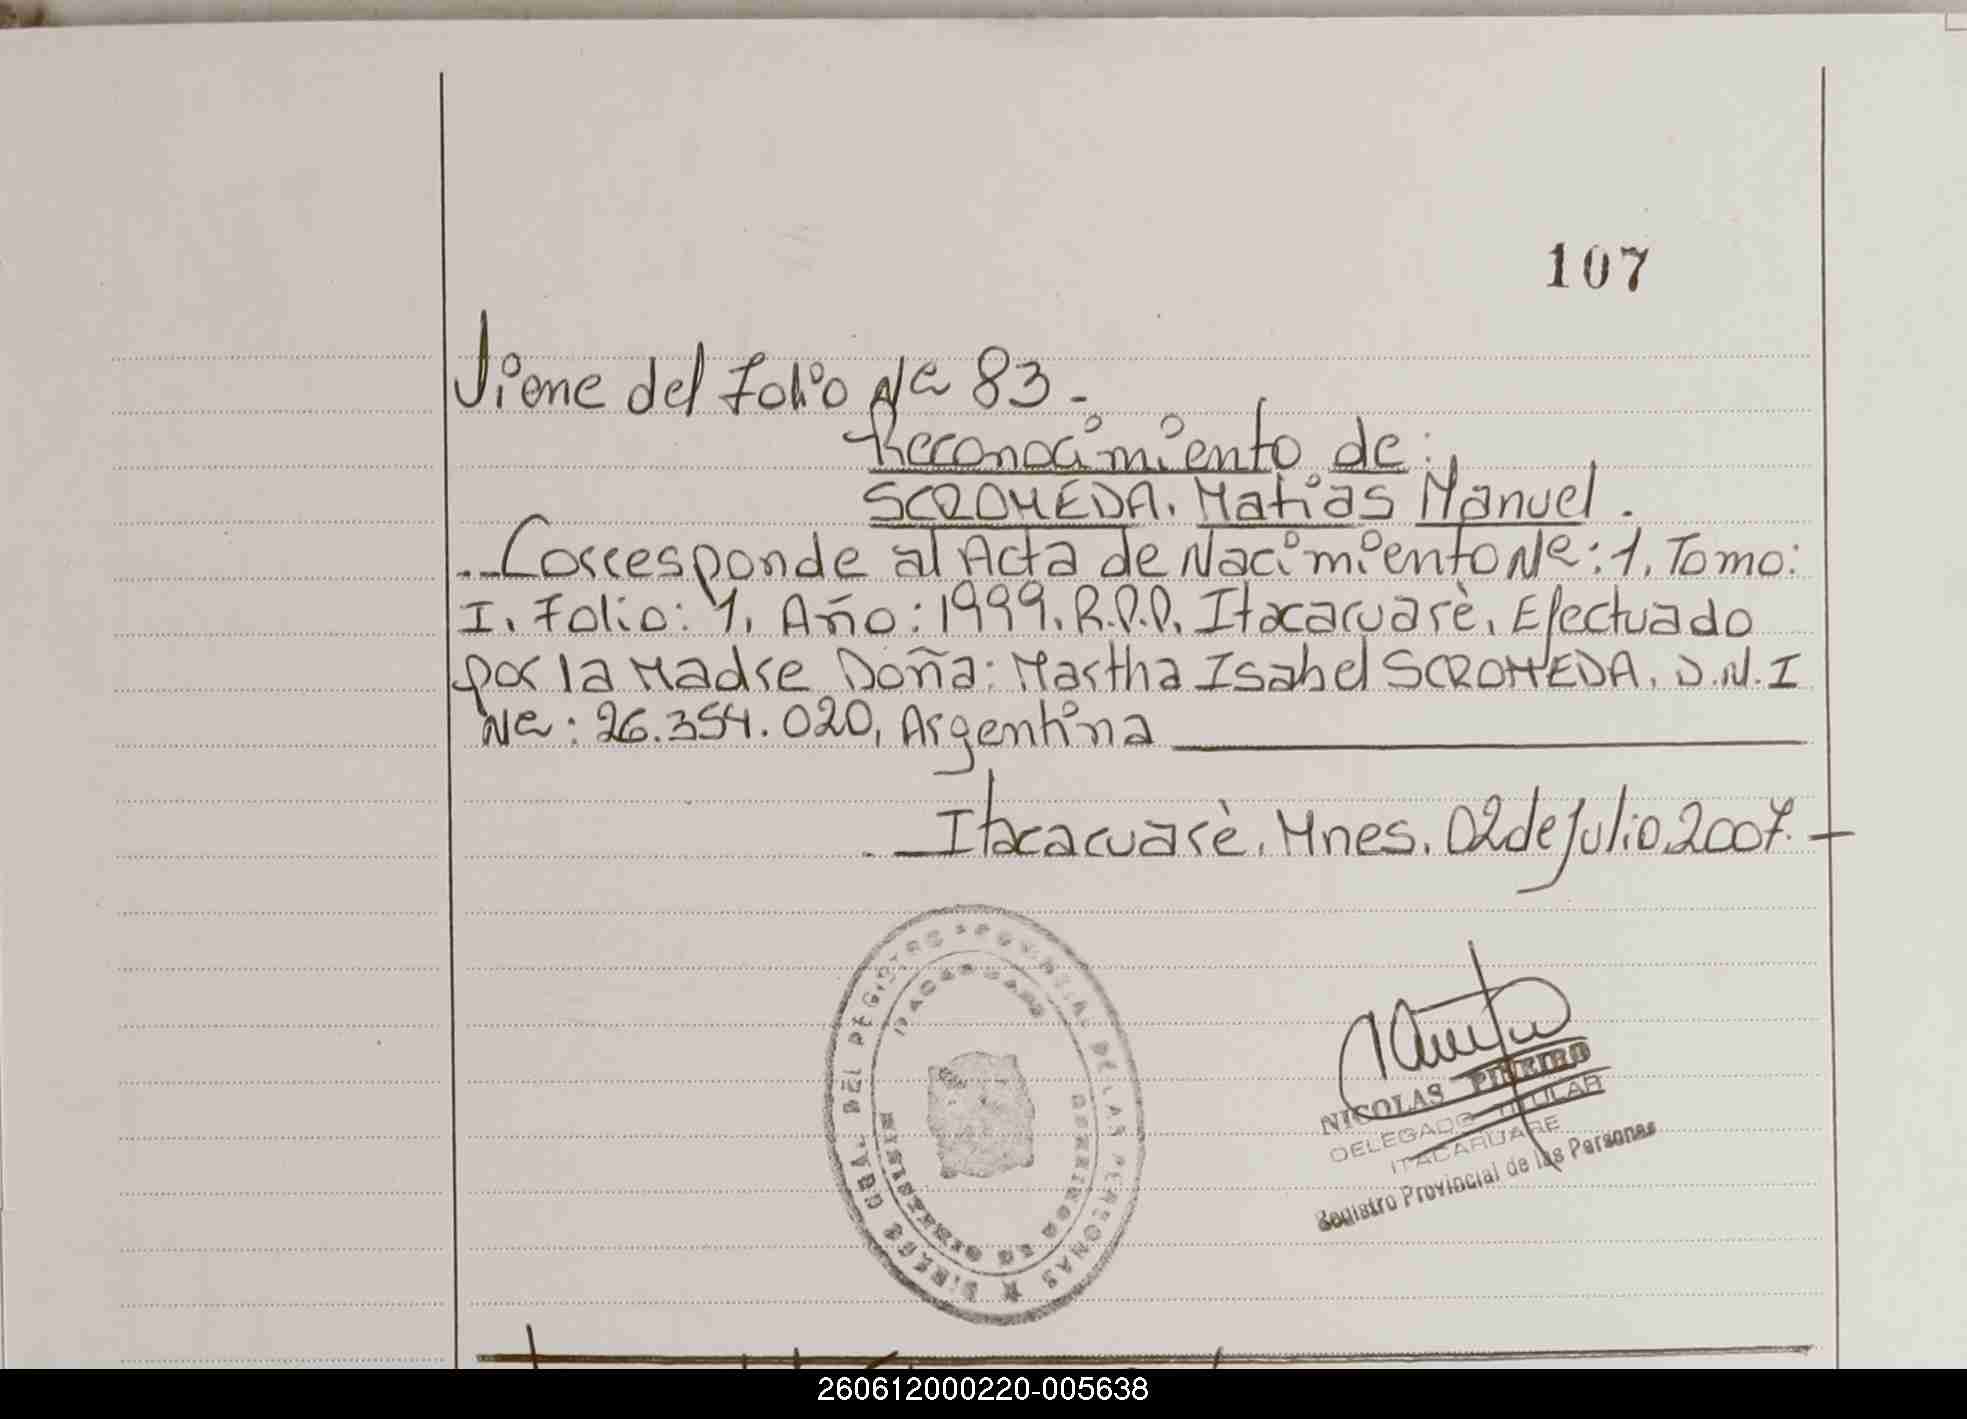 107
Viene del Folio Nº 83-
Reconocimiento de:
SCROMEDA. Matias Manuel.
Corresponde al Acta de Nacimiento Nº: 1. Tomo:
I. Folio: 1. Año: 1999. R.P.P. Itacaruarè. Efectuado
por la Madre Doña: Martha Isabel SCROMEDA. D.N.I
Nº: 26.354.020, Argentina
Itacaruarè. Mnes. 02 de Julio 2007.
DIRECC GRAL DEL REGISTRO PROVINCIAL DE LAS PERSONAS
ITACARUARE
MISIONES
NICOLAS PIÑEIRO
DELEGADO TITULAR
ITACARUARE
Registro Provincial de las Personas
260612000220-005638